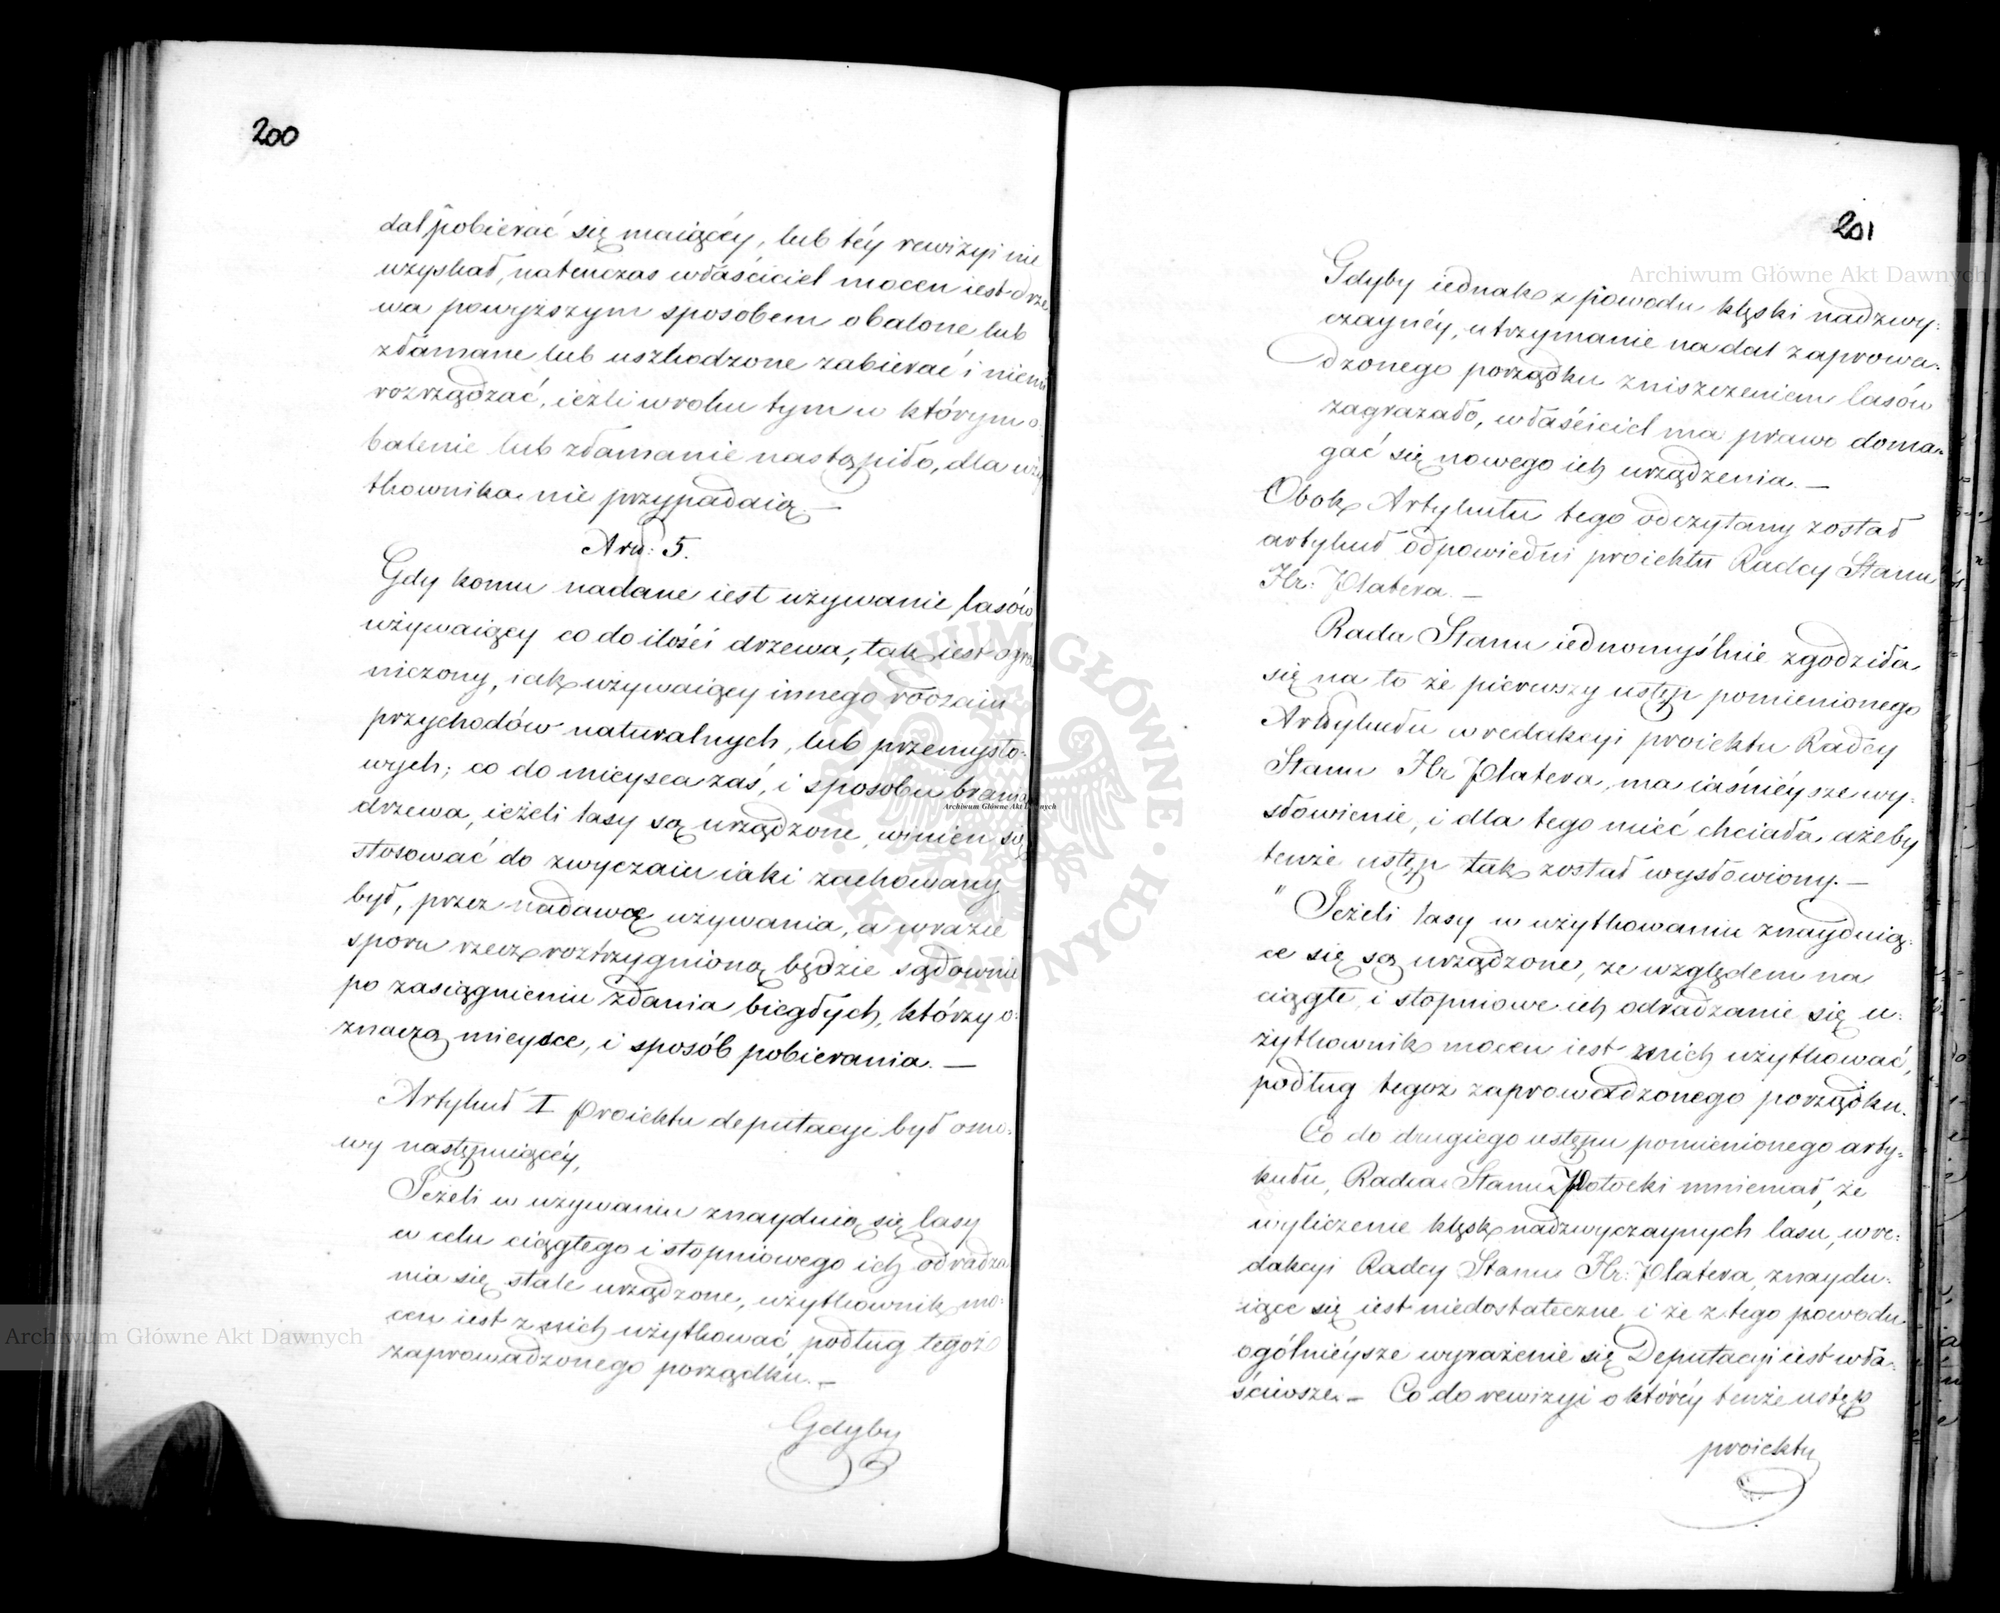 200
dal pobierać się maiącéy, lub téy rewizyi nie
uzyskał, natenczas właściciel mocen iest drze
wa powyższym sposobem obalone lub
złamane lub uszkodzone zabierać i niemi
rozrządzać, ieżli w roku tym w którym o
balenie lub złamanie nastąpiło, dla uży
tkownika nie przypadaią. —
Art: 5.
Gdy komu nadane iest używanie lasów
używaiący co do ilości drzewa, tak iest ogra
niczony, iak używaiący innego rodzaiu
przychodów naturalnych, lub przemysło-
wych; co do mieysca zaś, i sposobu brania
drzewa, ieżeli lasy są urządzone, winien się
stosować do zwyczaiu iaki zachowany
był, przez nadawcę używania, a w razie
sporu rzecz roztrzygnioną będzie sądownie
po zasiągnieniu zdania biegłych, którzy o:
znaczą mieysce, i sposób pobierania. —
Artykuł I proiektu deputacyi był osno:
wy następuiącéy,
Jeżeli w używaniu znayduią się lasy
w celu ciągłego i stopniowego ich odradza
nia się stale urządzone, użytkownik mo:
cen iest z nich użytkować, podług tegoż
zaprowadzonego porządku. —
Gdyby
201
Gdyby iednak z powodu klęski nadzwy:
czaynéy, utrzymanie nadal zaprowa:
dzonego porządku zniszczeniem lasów
zagrażało, właściciel ma prawo doma:
gać się nowego ich urządzenia. —
Obok Artykułu tego odczytany został
artykuł odpowiedni proiektu Radcy Stanu
Hr: Platera. —
Rada Stanu iednomyślnie zgodziła
się na to że pierwszy ustęp pomienionego
Artykułu w redakcyi proiektu Radcy
Stanu Hr Platera, ma iaśnieysze wy:
słowienie, i dla tego mieć chciała, ażeby
tenże ustęp tak został wysłowiony. —
" Jeżeli lasy w użytkowaniu znayduią:
ce się są urządzone, ze względem na
ciągłe, i stopniowe ich odradzanie się u:
żytkownik mocen iest z nich użytkować,
podług tegoż zaprowadzonego porządku.
Co do drugiego ustępu pomienionego arty:
kułu, Radca Stanu Potocki mniemał, że
wyliczenie klęsk nadzwyczaynych lasu, w re:
dakcyi Radcy Stanu Hr: Platera, znaydu:
iące się iest niedostateczne i że z tego powodu
ogólnieysze wyrażenie się Deputacyi iest wła:
ściwsze. — Co do rewizyi o któréy tenże ustęp
proiektu
Archiwum Główne Akt Dawnych
Archiwum Główne Akt Dawnych
Archiwum Główne Akt Dawnych
ARCHIWUM GŁÓWNE · AKT DAWNYCH ·